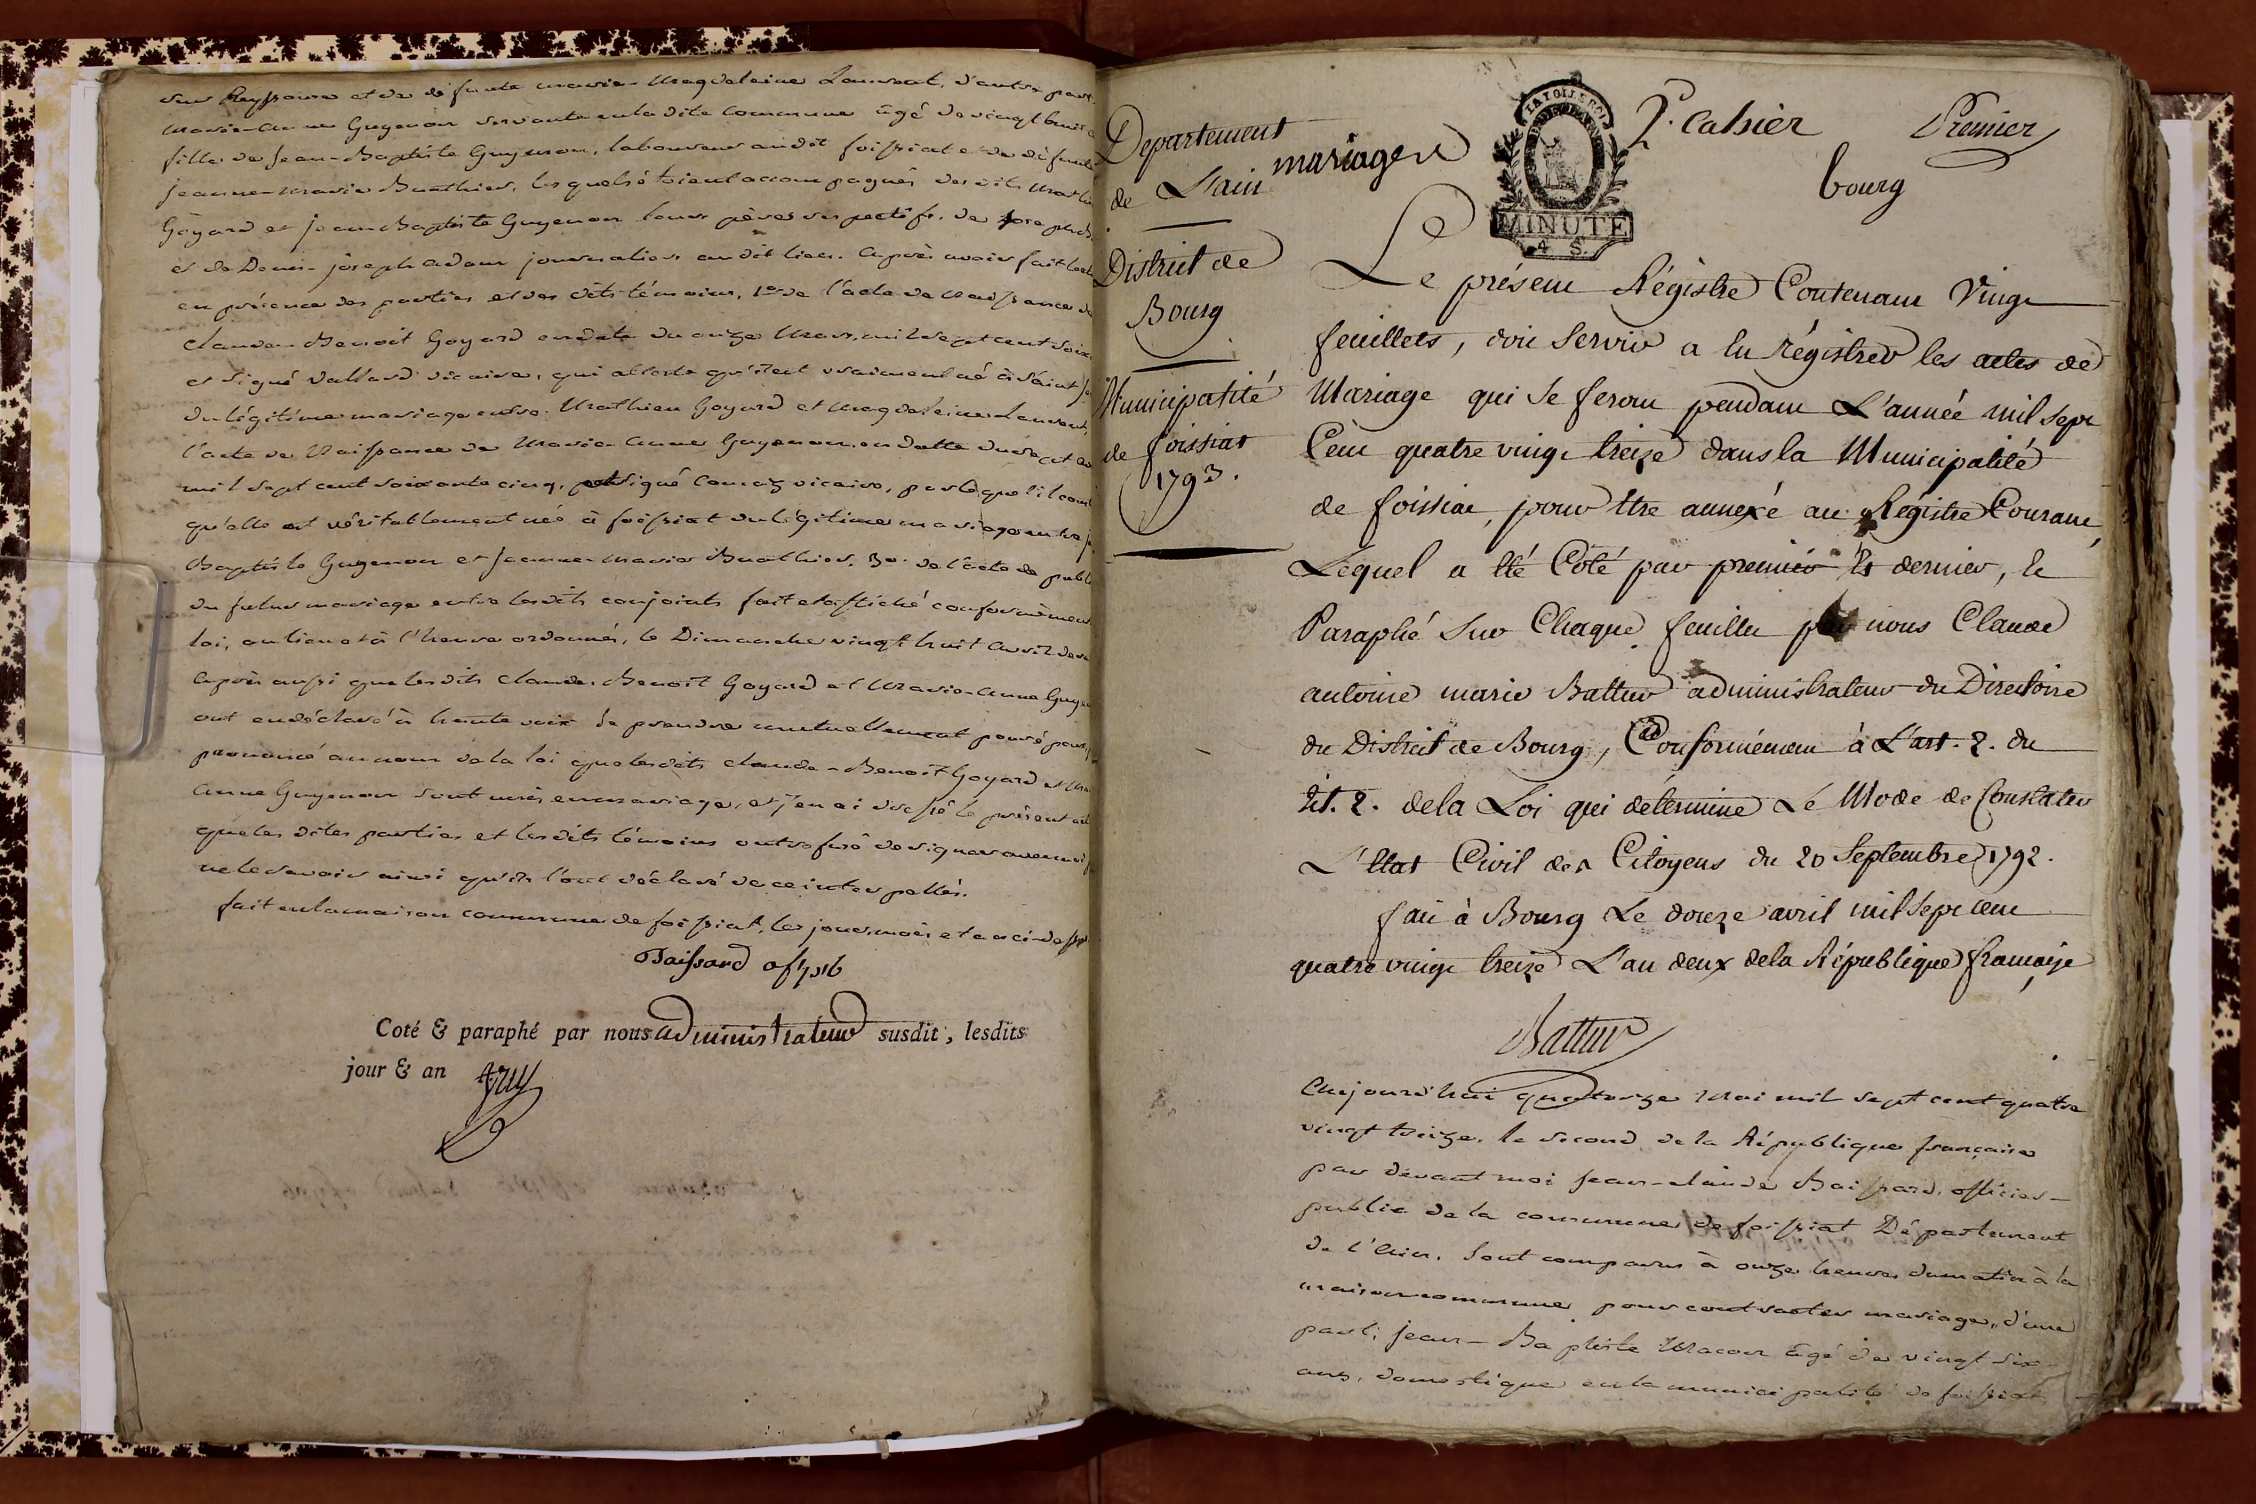 sur Reyssouse et de défunte marie-Magdelaine Laurent, d'autre part
marie-anne Guyenon servante en la dite commune âgé de vingt huit a
fille de Jean-Baptiste Guyenon, laboureur au dit foissiat et de défunte
jeanne-marie Buathier, lesquels étoient accompagnés desdits Mathieu
Goyard et jean Baptiste Guyenon leurs pères respectifs, de
et de Denis-joseph adam journalier au dit lieu. après avoir fait lecture
en présence des parties et des dits témoins, 1° de l'acte de Naissance de
claude-Benoit Goyard en date du onze Mars, mil sept cent soix
et signé Vallard vicaire, qui atteste qu'il est vraiment né à Saint
du légitime mariage entre Mathieu Goyard et Magdeleine Laurent,
l'acte de Naissance de Marie-anne Guyenon en datte du
mil sept cent soixante cinq, signé vicaire, par lequel il const
qu'elle est véritablement née à foissiat du légitime mariage entre J
Baptiste Guyenon et jeanne-Marie Buathier, 3° de l'acte de publ
du futur mariage entre lesdits conjoints fait et affiché conformément
loi, au lieu et à l'heure ordonnés, le Dimanche vingt huit avril der
après aussi que lesdits claude-Benoit Goyard et Marie-anne Guye
ont eu déclaré à haute voix se prendre mutuellement pour époux
prononcé au nom de la loi que lesdits claude-Benoit Goyard et Ma
anne Guyenon sont unis en mariage, et j'en ai dressé le présent act
que les dites parties et lesdits témoins ont refusé de signer avec moi p
ne le savoir ainsi qu'ils l'ont déclaré de ce interpellés.
fait en la maison commune de foissiat, les jour, mois et an ci-dessus
Baissard of. pub
Coté & paraphé par nous administrateur susdit, lesdits
jour & an
Departement
de L'ain
District de
Bourg
Municipalité
de foissiat
1793.
mariages
LA LOI LE ROI
MINUTE
4 S.
2e. Cahier
Premier
bourg
Le présent Régistre Contenant Vingt
feuillets, doit Servir a En régistrer les actes de
Mariage qui Se feront pendant L'année mil Sept
Cent quatre vingt treize dans la Municipalité
de foissiat, pour Etre annexé au Régistre Courant,
Lequel a Eté Côté par premier Et dernier, Et
Paraphé Sur Chaque feuillet par nous Claude
antoine marie Battur administrateur du Directoire
du District de Bourg, Conformément à L'art. 2. du
tit. 2. de la Loi qui détermine Le Mode de Constater
L'Etat Civil des Citoyens du 20 Septembre 1792.
fait à Bourg Le douze avril mil Sept cent
quatre vingt treize L'an deux de la République francaise
Battur
aujourd'hui quatorze Mai mil sept cent quatre
vingt treize, le second de la République française
par devant moi jean-claude Baissard, officier-
public de la commune de foissiat Département
de l'Ain, sont comparus à onze heures du matin à la
maison commune pour contracter mariage, d'une
part, jean-Baptiste Macon âgé de vingt six
ans, domestique en la municipalité de foissiat